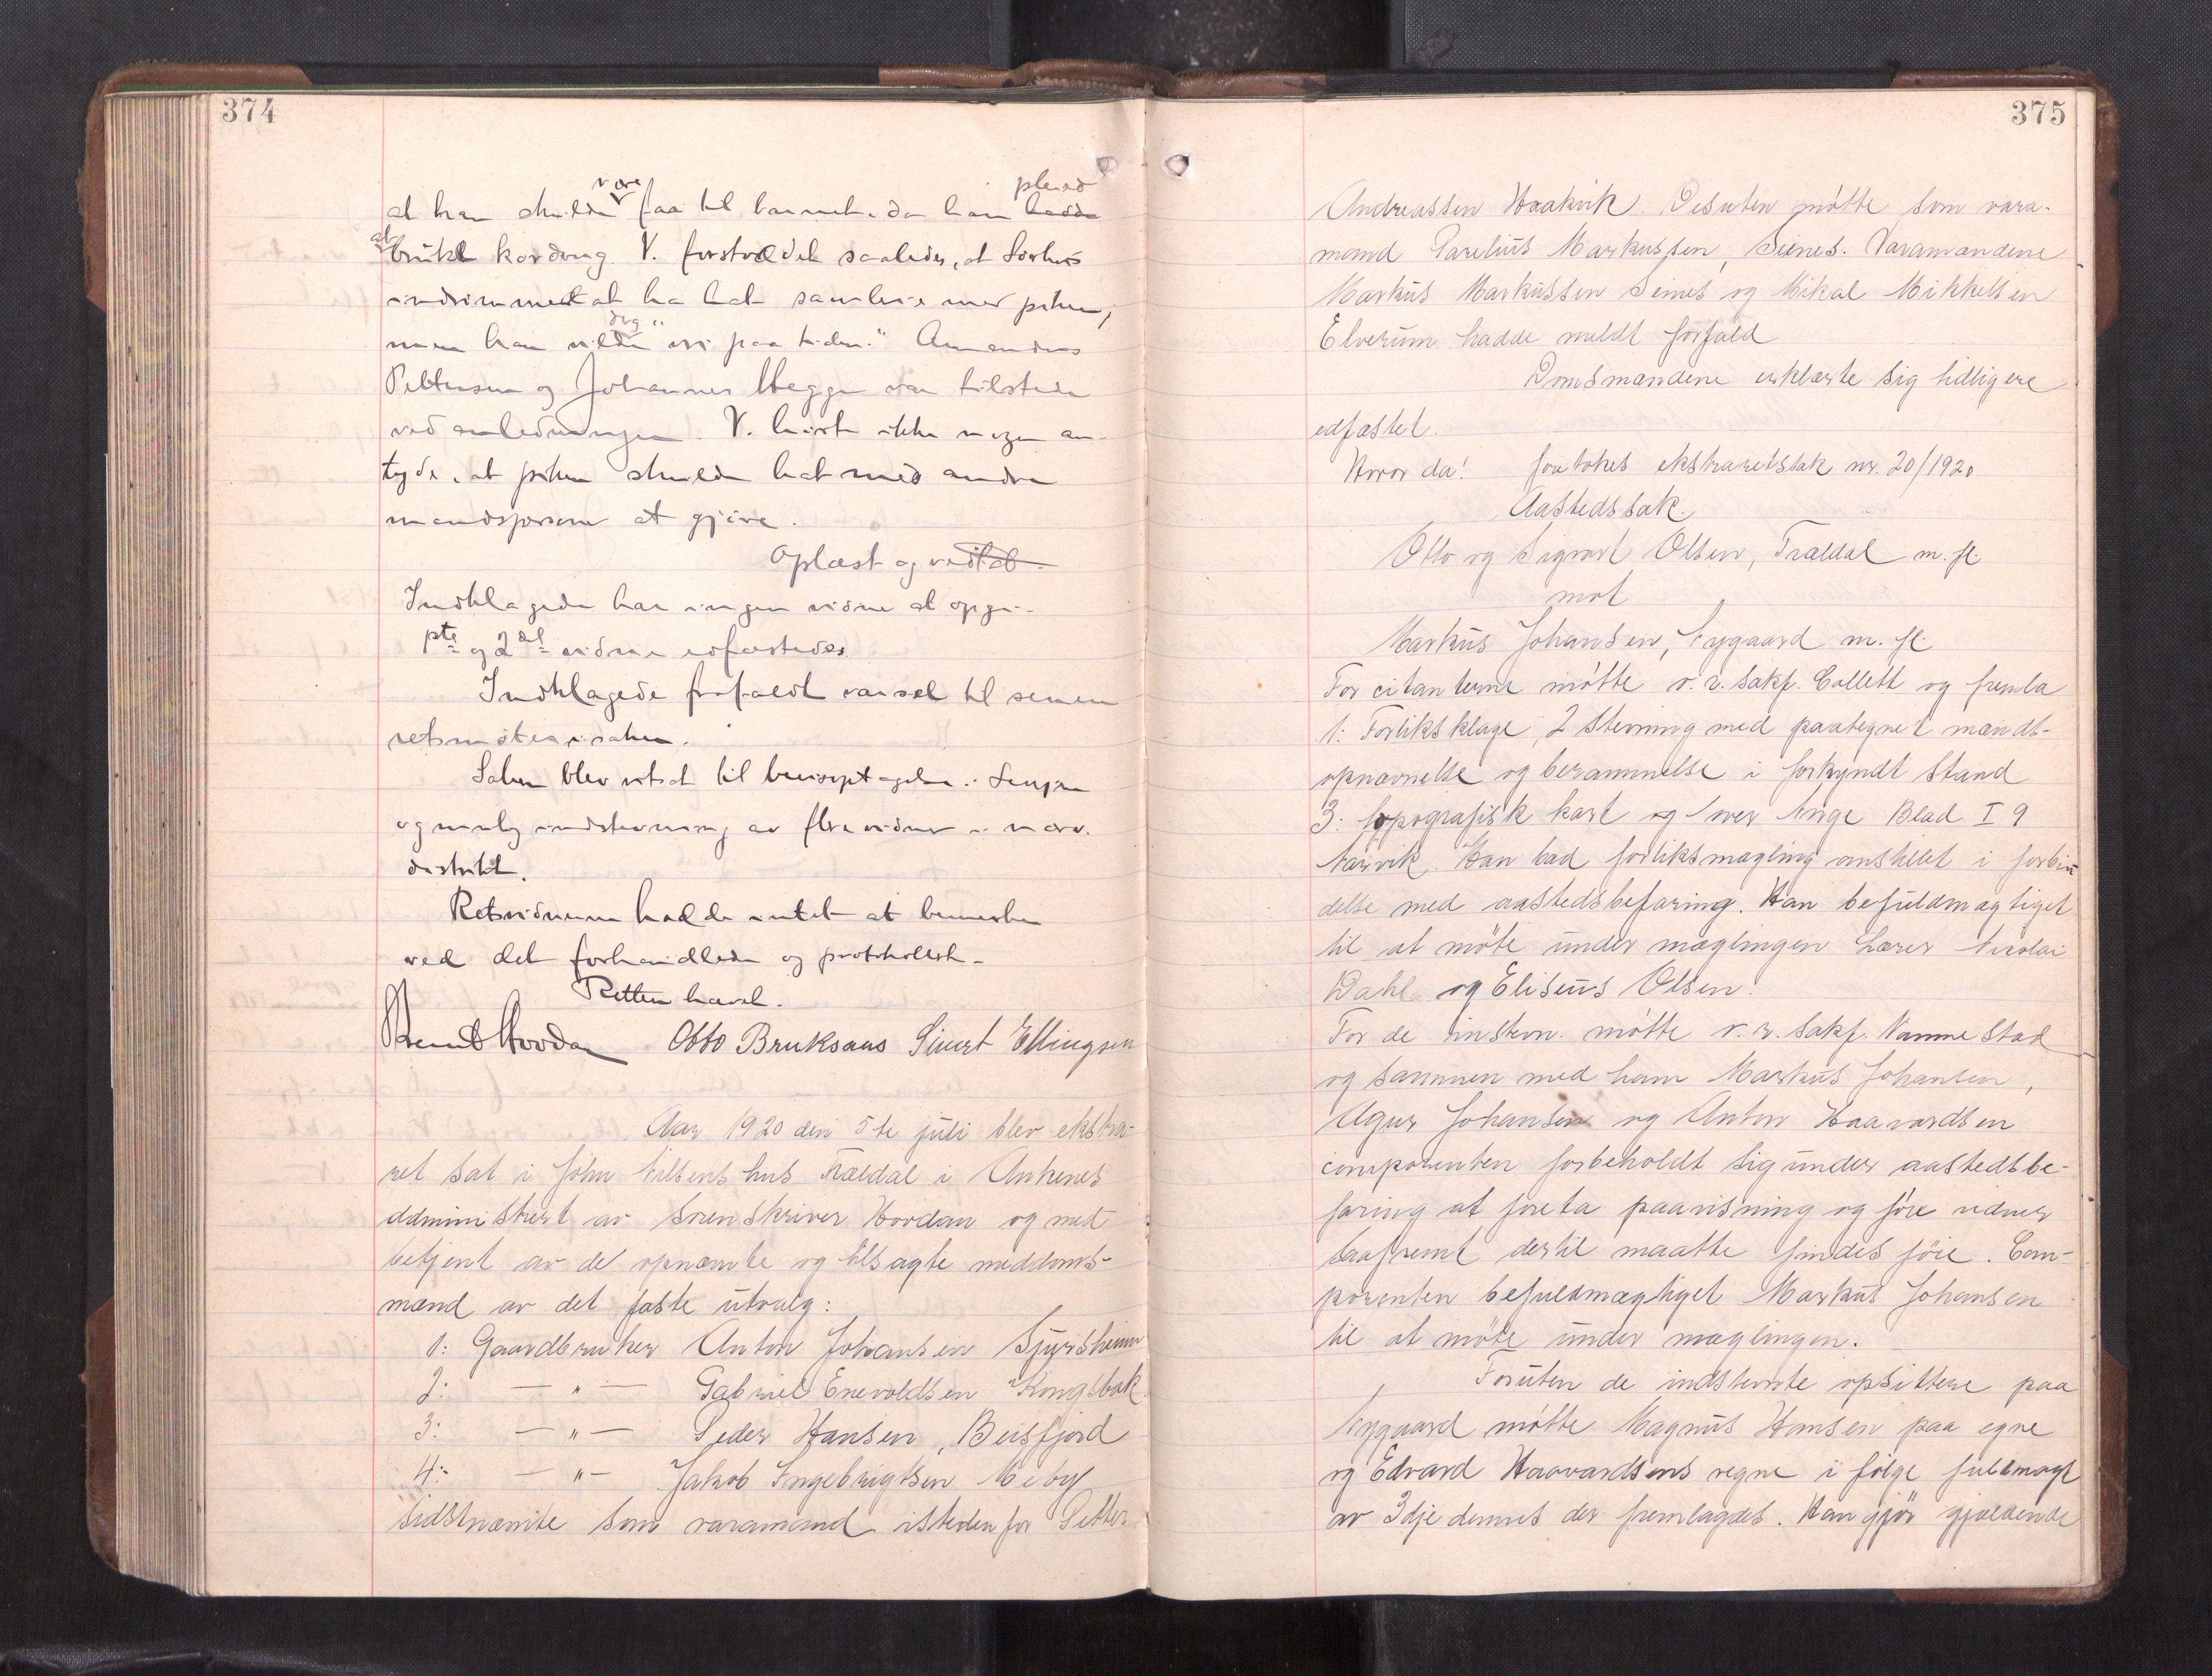 374
at han skulde være far til barnet, da han hadde pleiet
at brukt kordong. V. forstod det saaledes, at
indrømmet at ha hat samleie med piken,
men han vilde dog "se paa tiden." Amandus
Pettersen og Johannes Hegge var tilstede
ved anledningen. V. hørte ikke nogen an-
tyde, at piken skulde hat med andre
mandspersoner at gjøre.
Oplæst og vedtat.
Indklagede har ingen vidne at opgi.
1ste og 2det vidne edfæstedes.
Indklagede frafaldt varsel til senere
retsmøter i saken.
Saken blev utsat til bevisoptagelse i Senjen
og mulig indstevning av flere vidner i nærv.
distrikt.
Retsvidnerne hadde intet at bemerke
ved det forhandlede og protokollerte.
Retten hævet.
Hovdan Otto Bruksaas Sivert Ellingsen
Aar 1920 den 5te juli blev ekstra-
ret sat i John Nilsens hus Trældal i Ankenes
administrert av Sorenskriver Hovdan og med
betjent av de opnævnte og tilsagte meddoms-
mænd av det faste utvalg:
1: Gaardbruker Anton Johansen Sjursheim
2: — " — Gabriel Enevoldsen Kongsbak
3: — " — Peder Hansen, Beisfjord
4: — " — Jakob Ingebrigtsen Meby
sidstnævnte som varamand istedenfor Petter
375
Andreassen Haakvik. Desuten møtte som vara-
mand Parelius Markussen, Seines. Varamændene
Markus Markussen Seines og Mikal Mikkelsen
Elverum hadde meldt forfald
Domsmændene erklærte sig tidligere
edfæstet.
Hvor da! foretokes ekstraretssak nr. 20/1920
Aastedssak.
Otto og Sigvart Olsen, Trældal m. fl.
mot
Markus Johansen, Nygaard m. fl.
For citanterne møtte o.r. sakf. Collett og fremla
1: Forliksklage, 2 Stevning med paategnet mands-
opnævnelse og berammelse i forkyndt stand
3: topografisk kart og over Norge Blad I 9
Narvik. Han bad forliksmægling anstillet i forbin
delse med aastedsbefaring. Han befuldmægtiget
til at møte under mæglingen Lærer Nicolai
Dahl og Eliseus Olsen.
For de instevn. møtte o.r. sakf. Nammestad
og sammen med ham Markus Johansen,
Agur Johansen og Anton Haavardsen
comparenten forbeholdt sig under aastedsbe-
faring at foreta paavisning og føre vidner
saafremt dertil maatte findes føie. Com-
parenten befuldmægtiget Markus Johansen
til at møte under mæglingen.
Foruten de indstevnte opsittere paa
Nygaard møtte Magnus Hansen paa egne
og Edvard Haavardsens vegne i følge fuldmagt
av 3dje dennes der fremlagdes. Han gjør gjældende